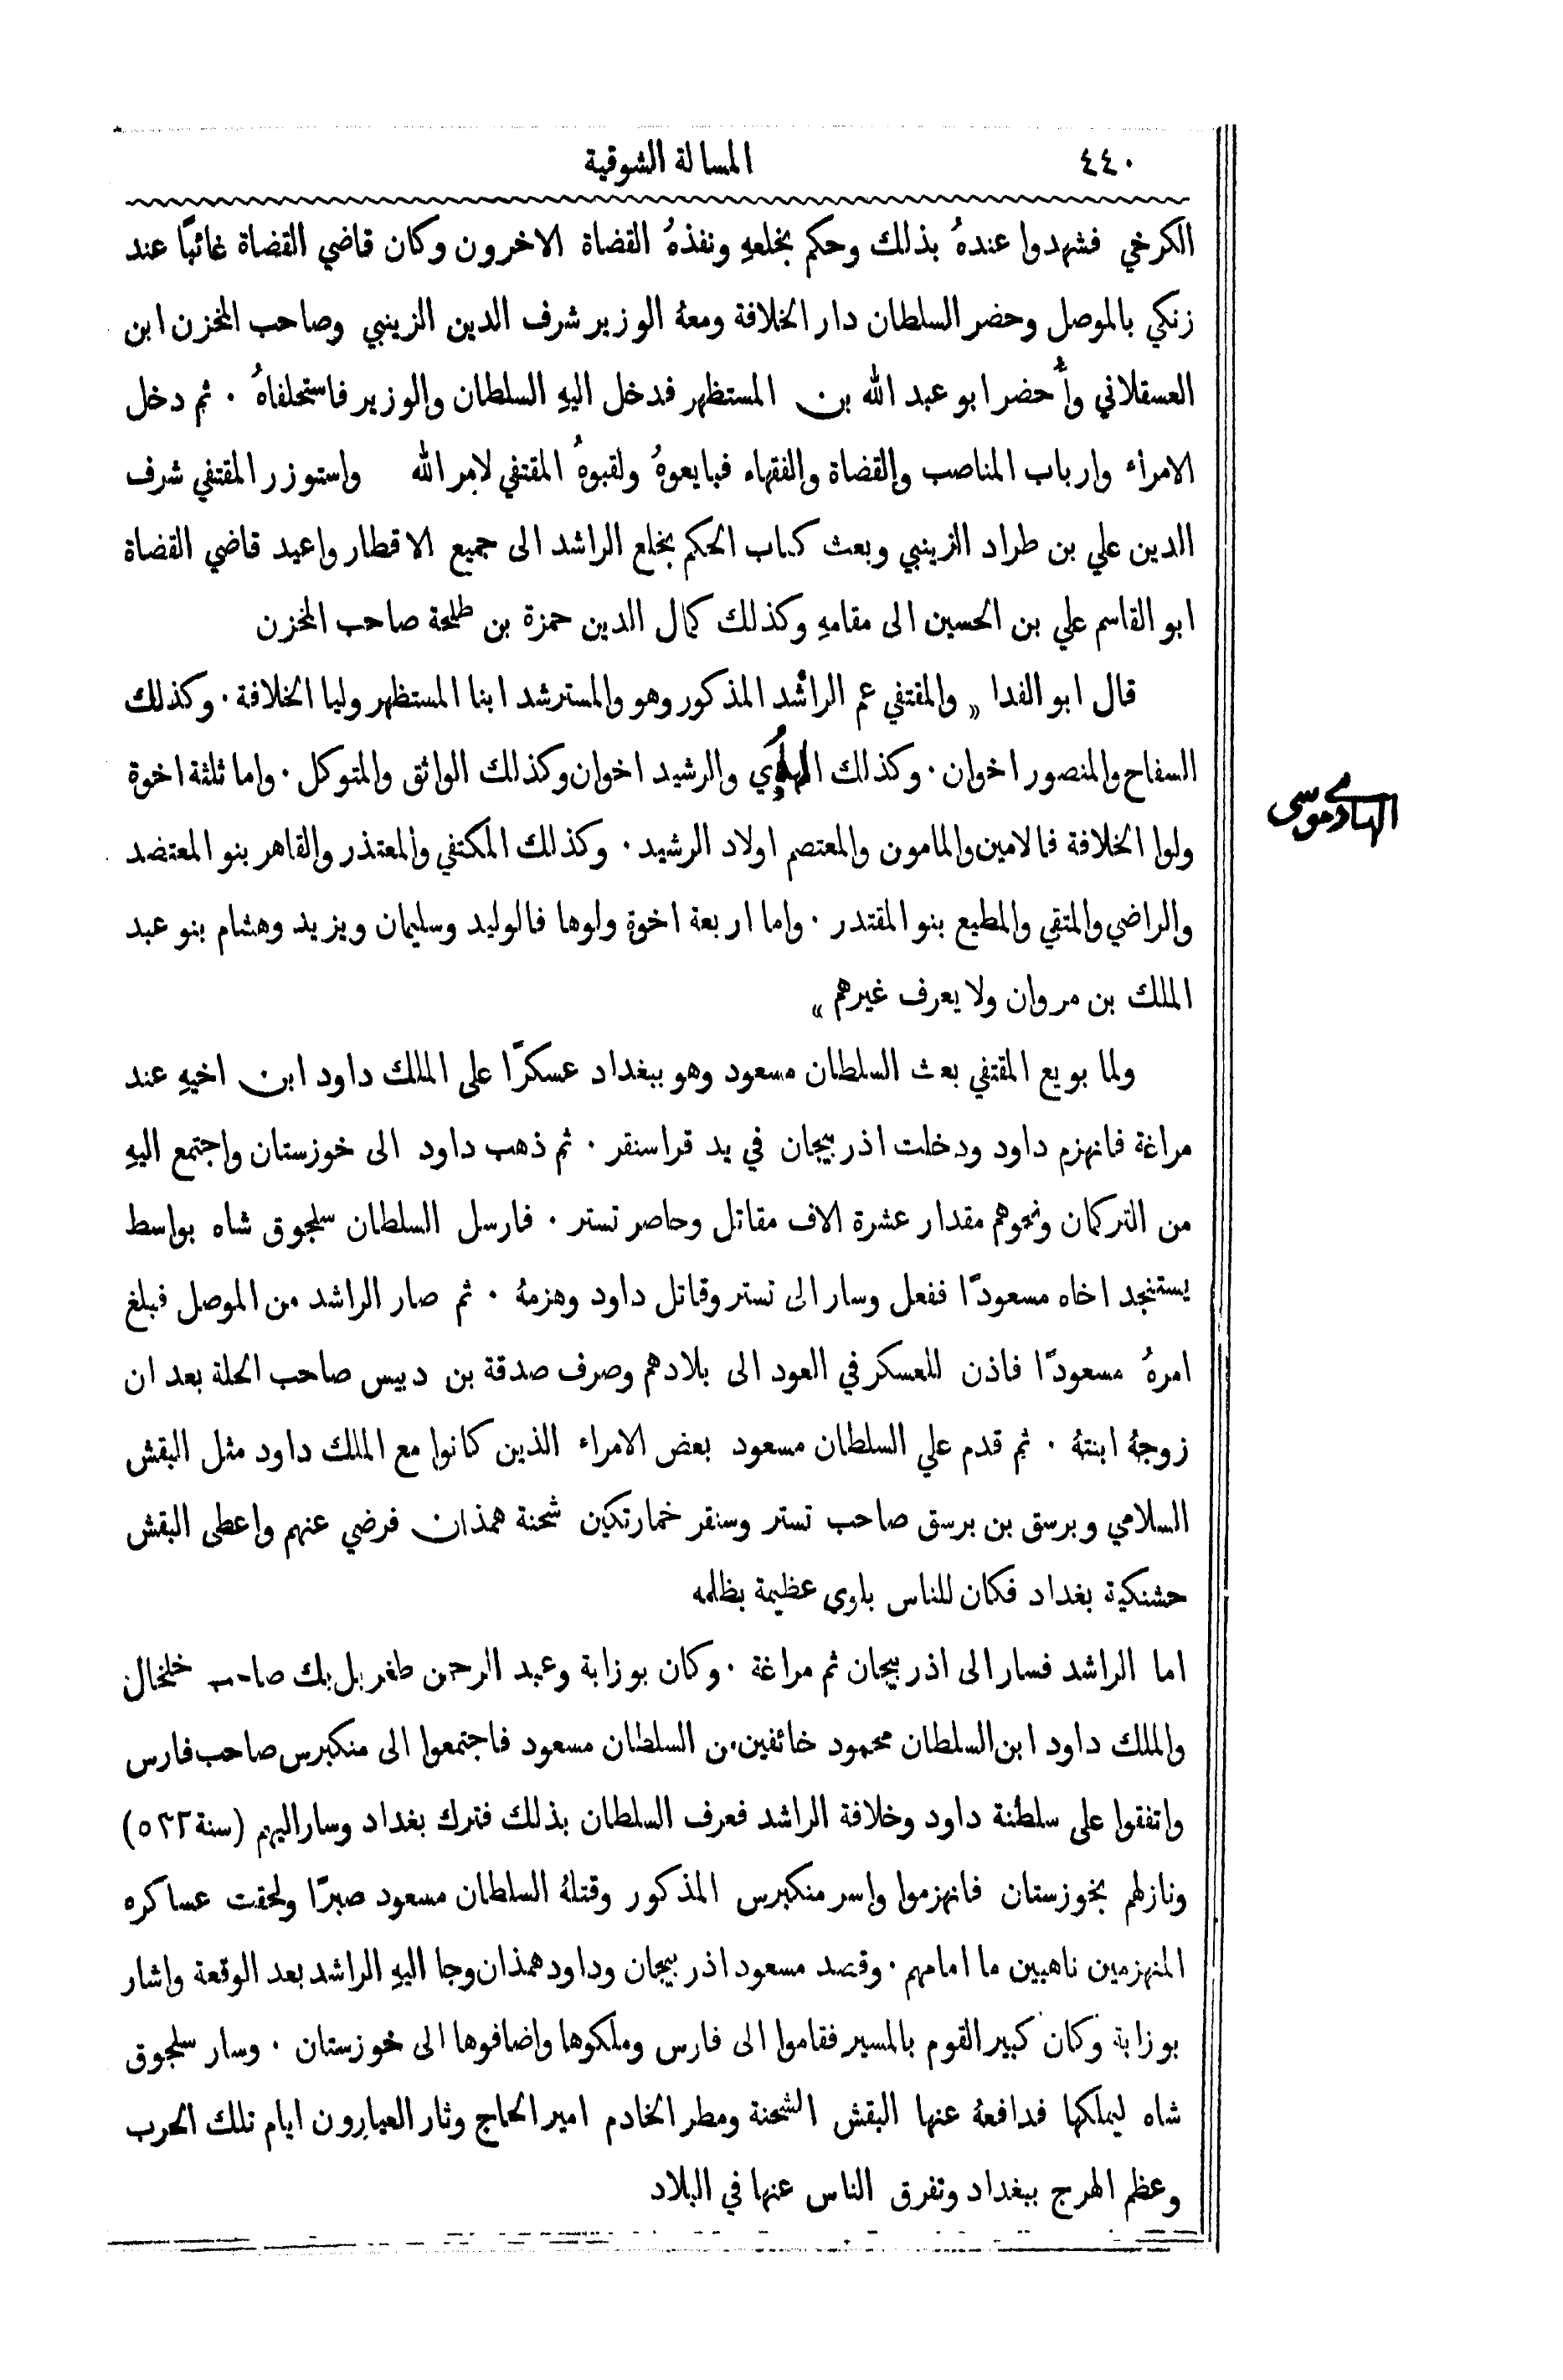 ٤٤٠
المسالة الشوقية
الكرخي فشهدوا عندهُ بذلك وحكم بخلعهِ ونفذهُ القضاة الاخرون وكان قاضي القضاة غائبًا عند
زنكي بالموصل وحضر السلطان دار الخلافة ومعهُ الوزير شرف الدين الزينبي وصاحب المخزن ابن
العسقلاني وأُحضر ابو عبد الله بن المستظهر فدخل اليهِ السلطان والوزير فاستحلفاهُ ٠ ثم دخل
الامراء وارباب المناصب والقضاة والفقهاء فبايعوهُ ولقبوهُ المقتفي لامر الله واستوزر المقتفي شرف
الدين علي بن طراد الزينبي وبعث كتاب الحكم بخلع الراشد الى جميع الاقطار واعيد قاضي القضاة
ابو القاسم علي بن الحسين الى مقامهِ وكذلك كمال الدين حمزة بن طلحة صاحب المخزن
قال ابو الفدا „ والمقتفي عم الراشد المذكور وهو والمسترشد ابنا المستظهر وليا الخلافة ٠ وكذلك
السفاح والمنصور اخوان ٠ وكذلك والرشيد اخوان وكذلك الواثق والمتوكل ٠ واما ثلثة اخوة
الهادي موسى
ولوا الخلافة فالامين والمامون والمعتصم اولاد الرشيد ٠ وكذلك المكتفي والمعتذر والقاهر بنو المعتضد
والراضي والمتقي والمطيع بنو المقتدر ٠ واما اربعة اخوة ولوها فالوليد وسليمان ويزيد وهشام بنو عبد
الملك بن مروان ولا يعرف غيرهم “
ولما بويع المقتفي بعث السلطان مسعود وهو ببغداد عسكرًا على الملك داود ابن اخيهِ عند
مراغة فانهزم داود ودخلت اذربيجان في يد قراسنقر ٠ ثم ذهب داود الى خوزستان واجتمع اليهِ
من التركمان ونحوهم مقدار عشرة الاف مقاتل وحاصر تستر ٠ فارسل السلطان سلجوق شاه بواسط
يستنجد اخاه مسعودًا ففعل وسار الى تستر وقاتل داود وهزمهُ ٠ ثم صار الراشد من الموصل فبلغ
امرهُ مسعودًا فاذن للعسكر في العود الى بلادهم وصرف صدقة بن دبيس صاحب الحلة بعد ان
زوجهُ ابنتهُ ٠ ثم قدم علي السلطان مسعود بعض الامراء الذين كانوا مع الملك داود مثل البقش
السلامي وبرسق بن برسق صاحب تستر وسنقر خمارتكين شحنة همذان فرضي عنهم واعطى البقش
حشنكية بغداد فكان للناس بلوى عظيمة بظلمه
اما الراشد فسار الى اذربيجان ثم مراغة ٠ وكان بوزابة وعبد الرحمن طغربل بك صاحب خلخال
والملك داود ابن السلطان محمود خائفين من السلطان مسعود فاجتمعوا الى منكبرس صاحب فارس
واتفقوا على سلطنة داود وخلافة الراشد فعرف السلطان بذلك فترك بغداد وسار اليهم (سنة ٥٣٢)
ونازلهم بخوزستان فانهزموا واسر منكبرس المذكور وقتلهُ السلطان مسعود صبرًا ولحقت عساكره
المنهزمين ناهبين ما امامهم ٠ وقصد مسعود اذربيجان وداود همذان وجا اليهِ الراشد بعد الوقعة واشار
بوزابة وكان كبير القوم بالمسير فقاموا الى فارس وملكوها واضافوها الى خوزستان ٠ وسار سلجوق
شاه ليملكها فدافعهُ عنها البقش الشحنة ومطر الخادم امير الحاج وثار العيارون ايام تلك الحرب
وعظم الهرج ببغداد وتفرق الناس عنها في البلاد